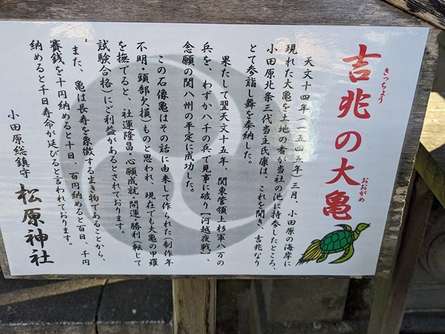 吉兆の大亀
きっちょう
おおがめ
天文十四年(一五四五年)三月、小田原の海岸に
現れた大亀を土地の者が当社の池に持参したところ、
小田原北条三代当主氏康は、これを聞き、吉兆なり
とて参詣し舞を奉納した。
果たして翌天文十五年、関東管領上杉軍八万の
兵を、わずか八千の兵で見事に破り【河越夜戦】
念願の関八州の平定に成功した。
この石像亀はその話に由来して作られた(制作年
不明・頭部欠損)ものと思われ、現在でも大亀の甲羅
を撫でると、社運隆昌・心願成就・開運・勝利(転じて
試験合格)にご利益があるとされております。
また、亀は長寿を象徴する生き物であることから、
賽銭を十円納めると十日、百円納めると百日、千円
納めると千日寿命が延びると言われております。
小田原総鎮守 松原神社